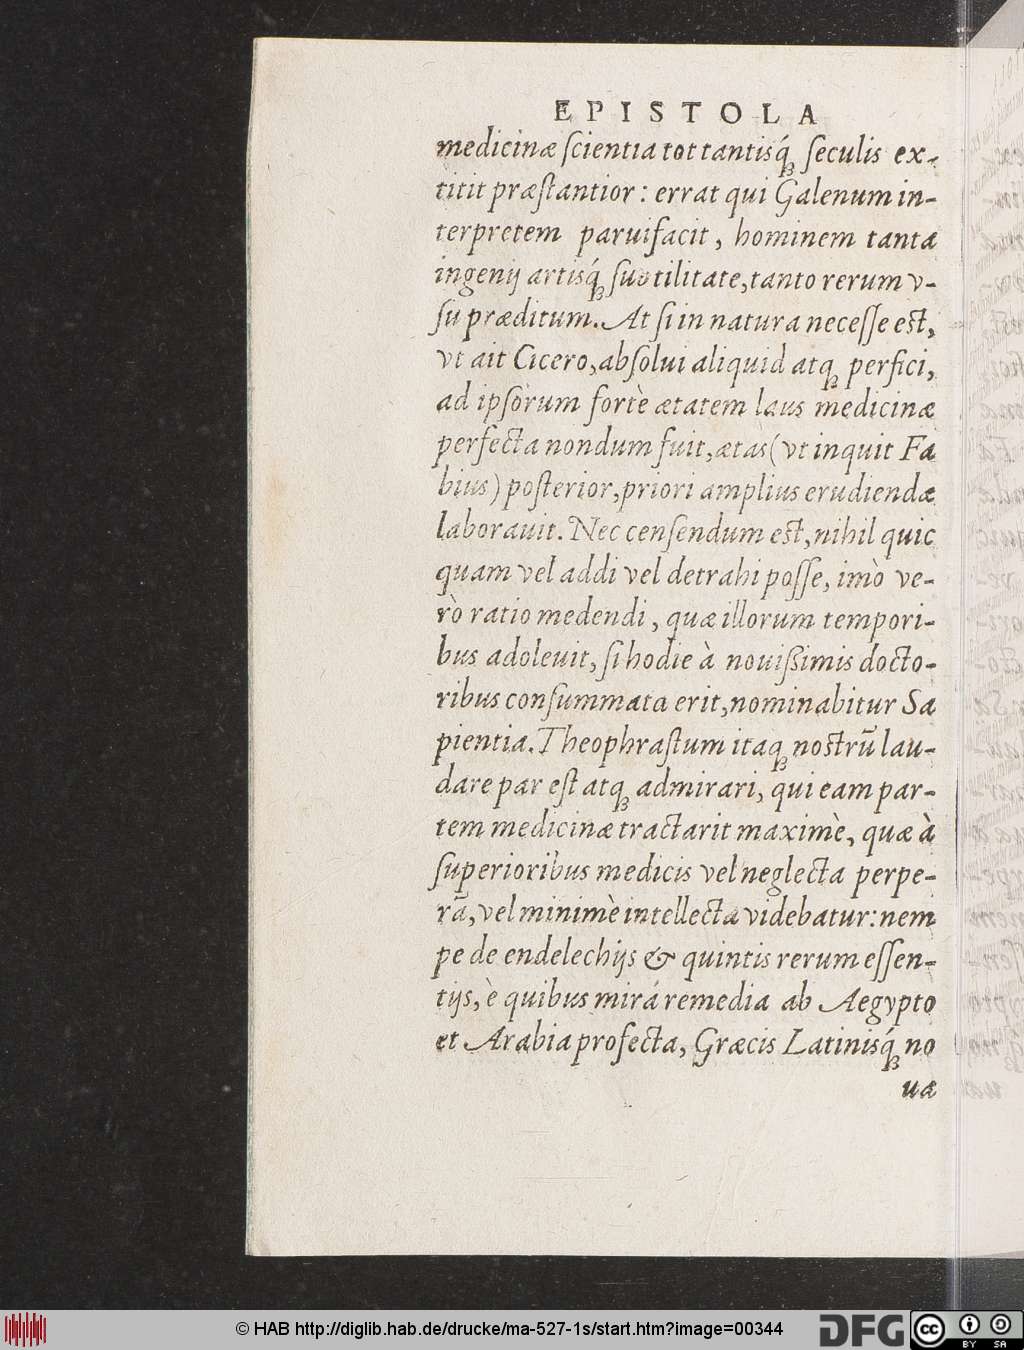 EPISTOLA
medicinæ ſcientia tot tantisq́ꝫ ſeculis ex-
titit præſtantior: errat qui Galenum in-
terpretem paruifacit, hominem tanta
ingenij artisq́ꝫ ſubtilitate, tanto rerum v-
ſu præditum. At ſi in natura neceſſe eſt,
vt ait Cicero, abſolui aliquid atqꝫ perfici,
ad ipſorum fortè ætatem laus medicinæ
perfecta nondum fuit, ætas (vt inquit Fa
bius) poſterior, priori amplius erudiendæ
laborauit. Nec cenſendum eſt, nihil quic
quam vel addi vel detrahi poſſe, imò ve-
rò ratio medendi, quæ illorum tempori-
bus adoleuit, ſi hodie à nouiſsimis docto-
ribus conſummata erit, nominabitur Sa
pientia. Theophraſtum itaqꝫ noſtrũ lau-
dare par eſt atqꝫ admirari, qui eam par-
tem medicinæ tractarit maximè, quæ à
ſuperioribus medicis vel neglecta perpe-
rã, vel minimè intellecta videbatur: nem
pe de endelechijs & quintis rerum eſſen-
tijs, è quibus mirá remedia ab Aegypto
et Arabia profecta, Græcis Latinisq́ꝫ no
ua
© HAB http://diglib.hab.de/drucke/ma-527-1s/start.htm?image=00344
DFG
cc BY SA